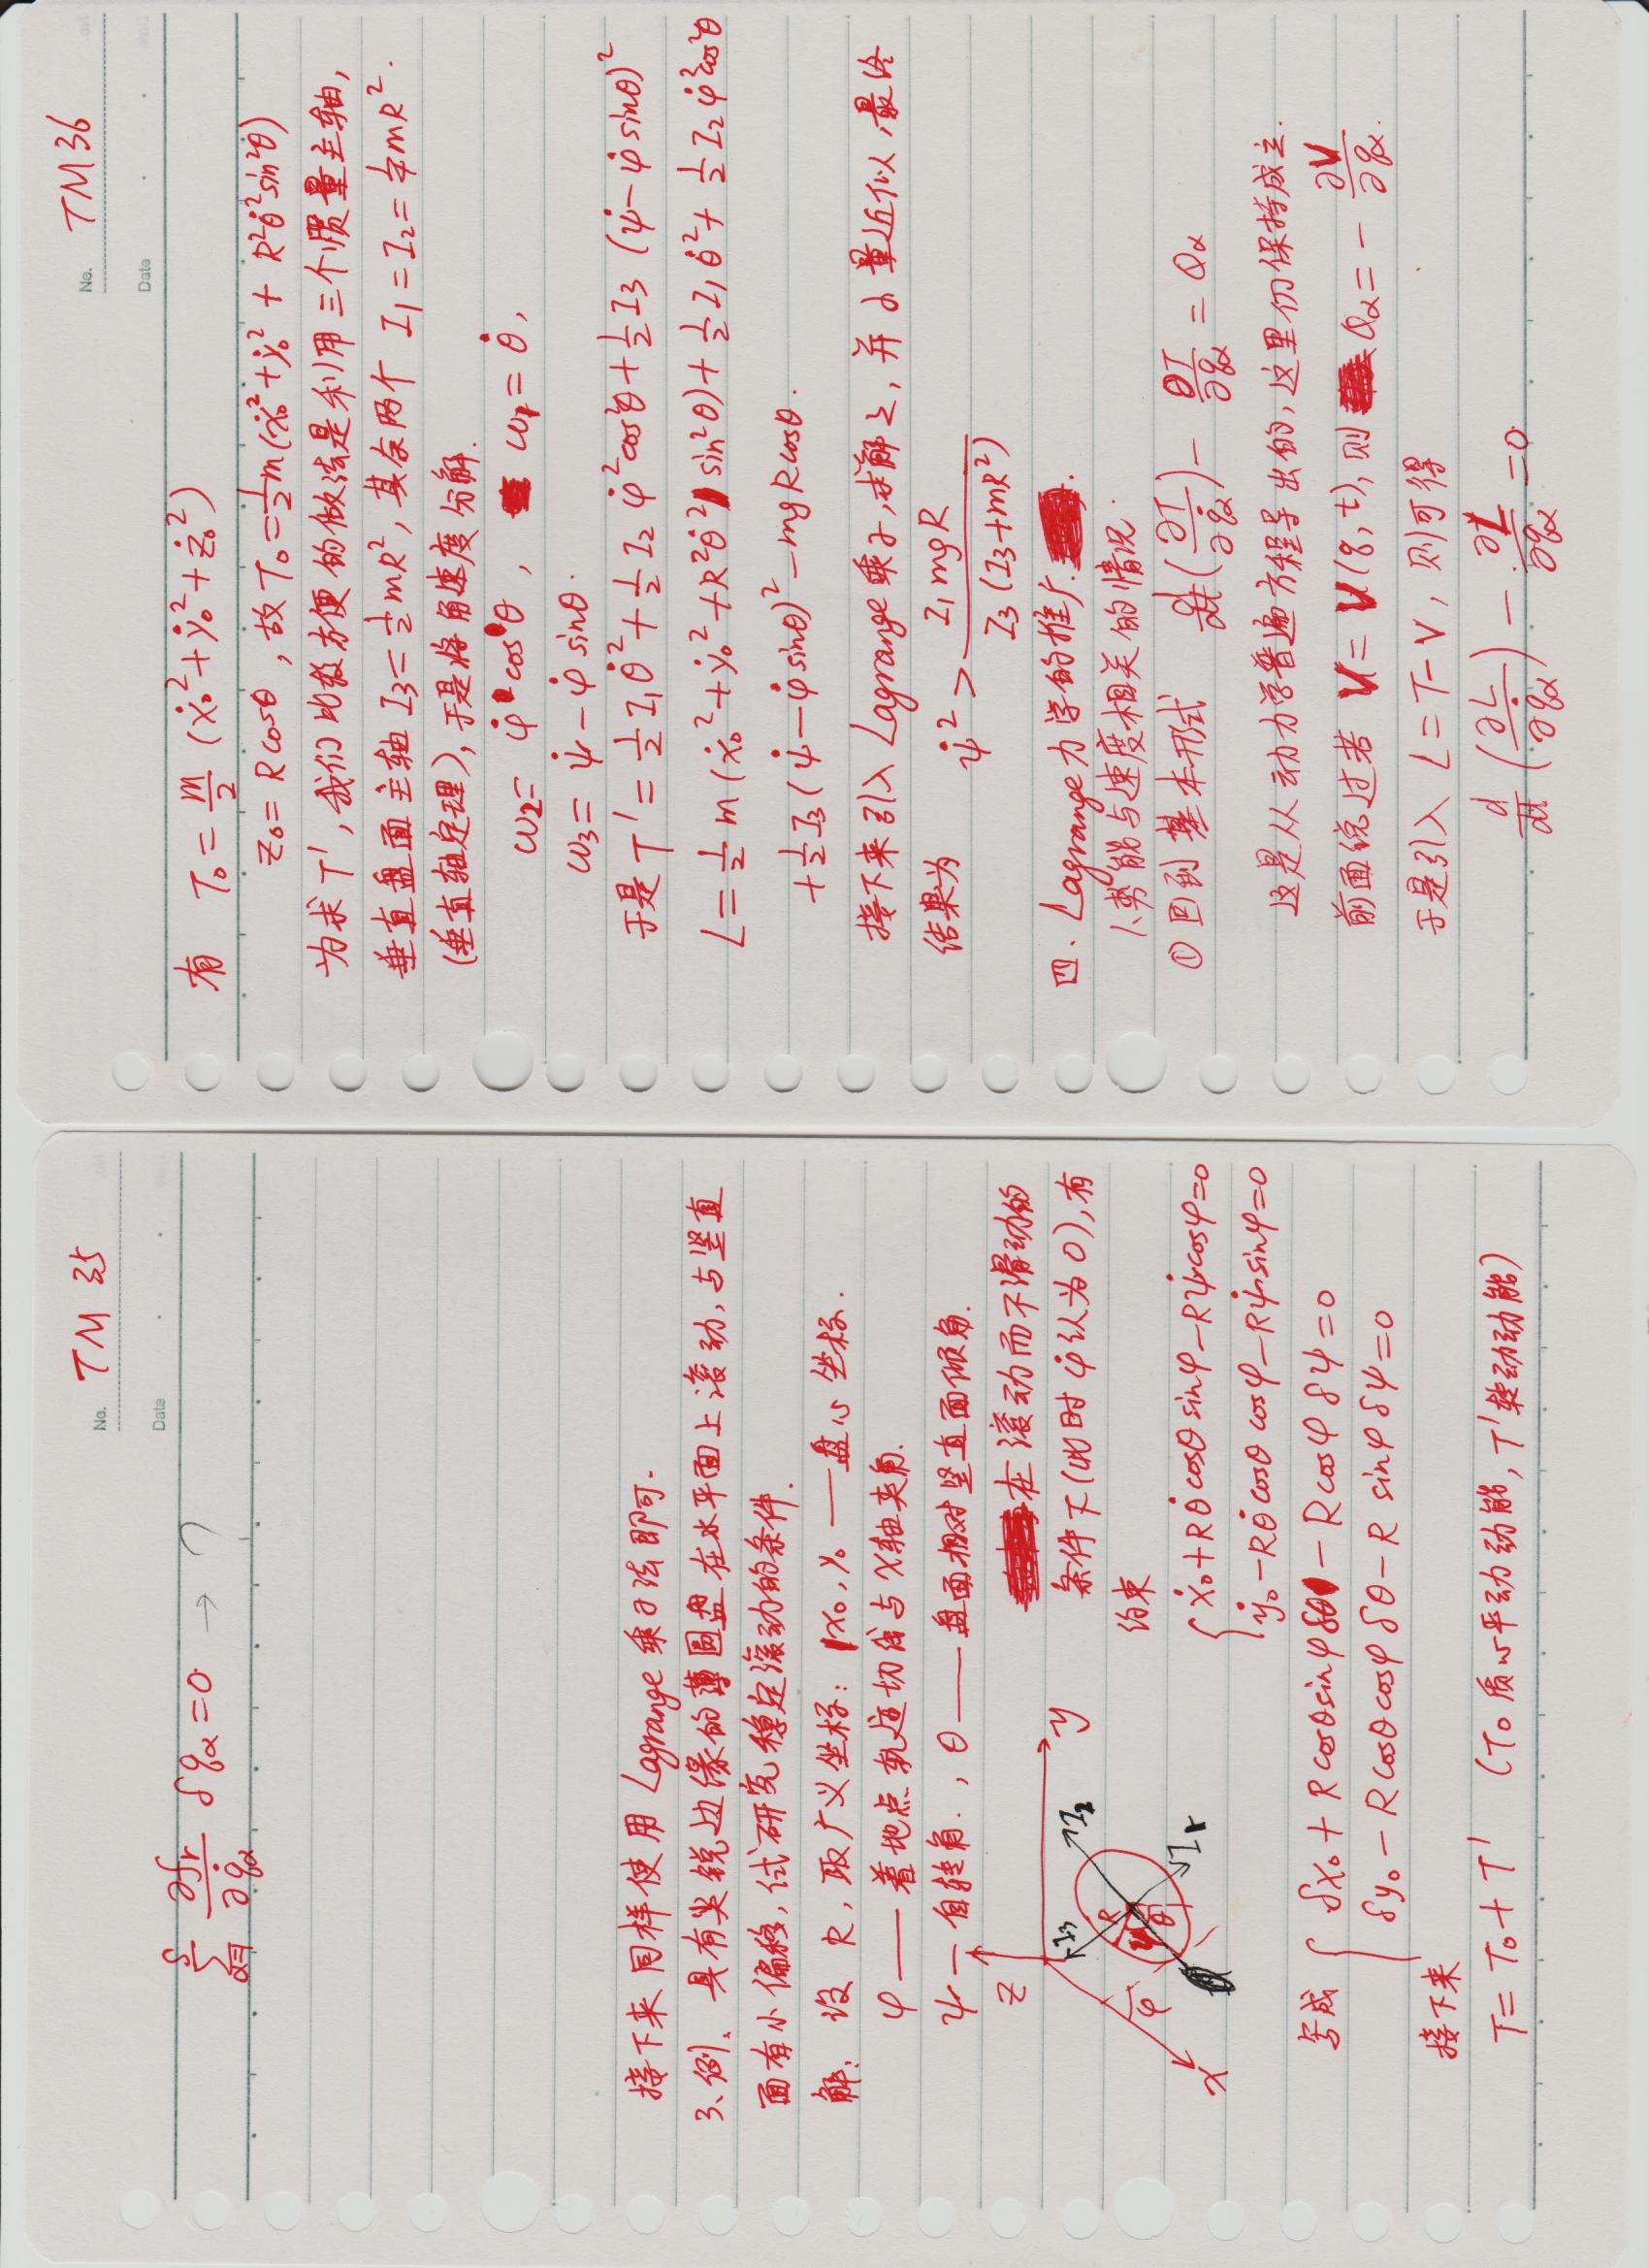 No. TM 35
Date
∑_{α=1}^{s} ∂f_r/∂q̇_α δq_α = 0 → ?
接下来同样使用 Lagrange 乘子法即可.
3、例、具有尖锐边缘的薄圆盘在水平面上滚动, 与竖直
面有小偏移, 试研究稳定滚动的条件.
解: 设 R, 取广义坐标: x₀, y₀ — 盘心坐标.
φ — 着地点轨迹切线与 x轴夹角.
ψ — 自转角. , θ — 盘面相对竖直面倾角.
z
y
x
I₃
I₂
I₁
R
φ
ψ
θ
在滚动而不滑动的
条件下 (此时 φ̇ 认为 0), 有
约束
{ ẋ₀ + Rθ̇cosθ sinφ − Rψ̇cosφ = 0
ẏ₀ − Rθ̇cosθ cosφ − Rψ̇sinφ = 0
写成 { δx₀ + R cosθ sinφ δθ − R cosφ δψ = 0
δy₀ − R cosθ cosφ δθ − R sinφ δψ = 0
接下来
T = T₀ + T' (T₀ 质心平动动能, T' 转动动能)
No. TM 36
Date
有 T₀ = m/2 (ẋ₀² + ẏ₀² + ż₀²)
z₀ = R cosθ , 故 T₀ = ½m(ẋ₀² + ẏ₀² + R²θ̇²sin²θ)
为求 T', 我们比较方便的做法是利用三个惯量主轴,
垂直盘面主轴 I₃ = ½mR², 其余两个 I₁ = I₂ = ¼mR².
(垂直轴定理), 于是将角速度分解.
ω₂ = φ̇ cosθ , ω₁ = θ̇,
ω₃ = ψ̇ − φ̇ sinθ.
于是 T' = ½ I₁θ̇² + ½ I₂ φ̇²cos²θ + ½ I₃ (ψ̇ − φ̇ sinθ)²
L = ½ m (ẋ₀² + ẏ₀² + R²θ̇² sin²θ) + ½ I₁ θ̇² + ½ I₂ φ̇²cos²θ
+ ½ I₃ (ψ̇ − φ̇ sinθ)² − mgR cosθ.
接下来引入 Lagrange 乘子, 求解之, 并小量近似, 最终
结果为 ψ̇² > I₁mgR / I₃(I₃+mR²)
四. Lagrange 力学的推广.
1、势能与速度相关的情况.
① 回到基本形式 d/dt (∂T/∂q̇_α) − ∂T/∂q_α = Q_α
这是从动力学普遍方程导出的, 这里仍保持成立.
前面说过若 V = V(q, t), 则 Q_α = − ∂V/∂q_α.
于是引入 L = T − V, 则可得
d/dt (∂L/∂q̇_α) − ∂L/∂q_α = 0